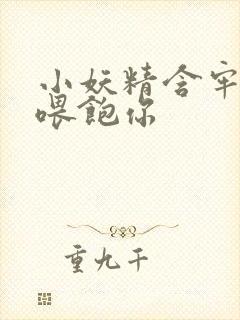 小妖精含牢
喂飽你
重九千